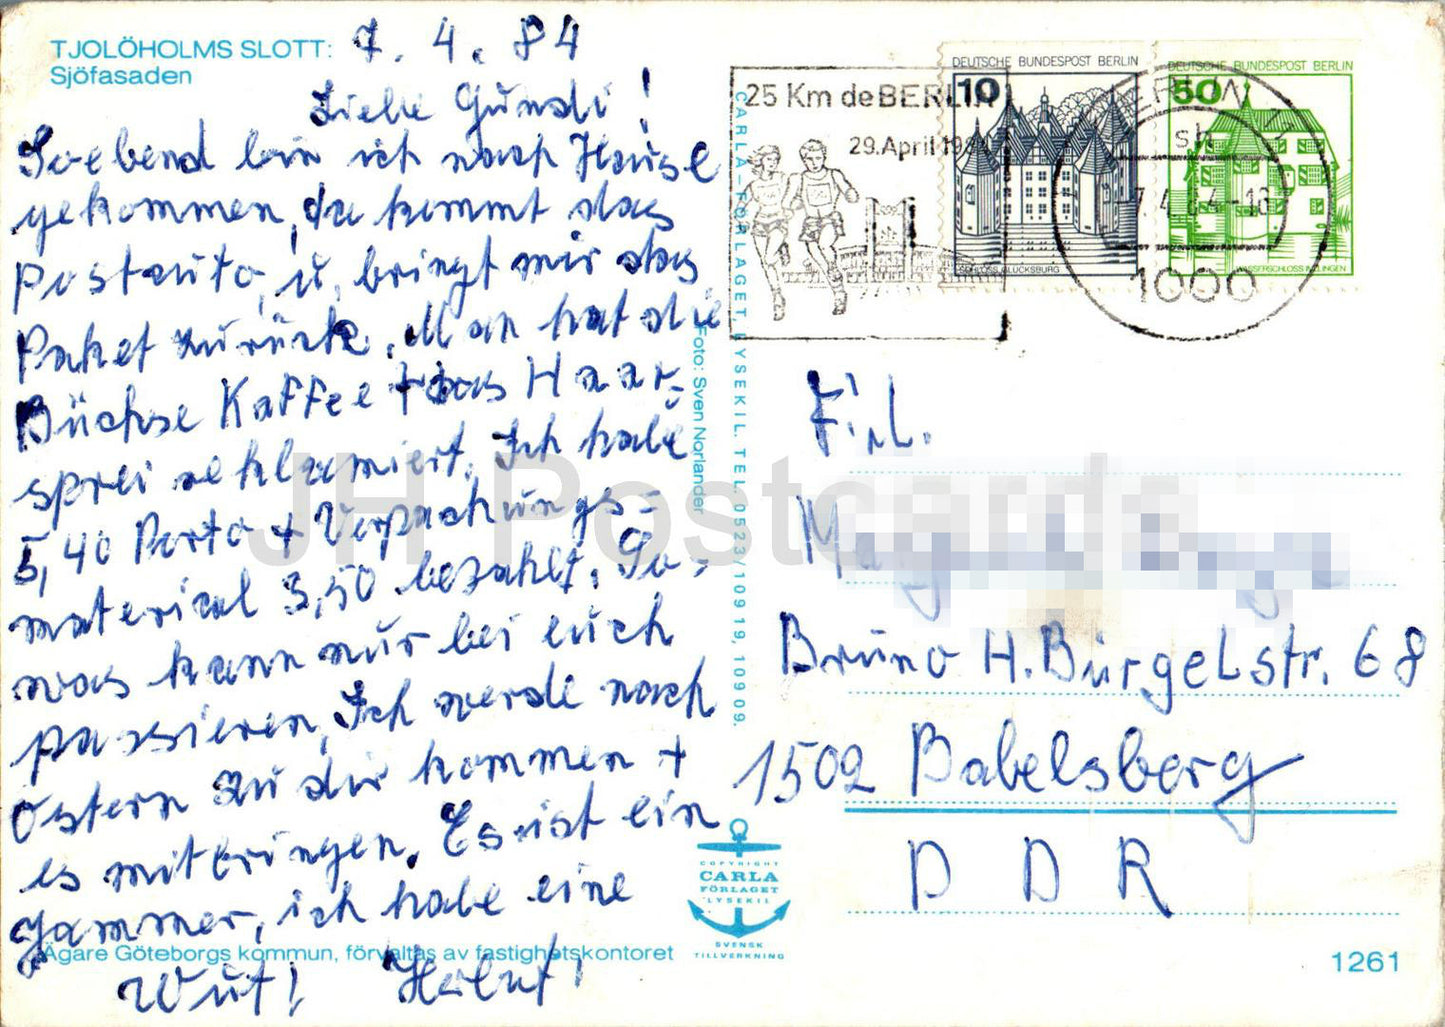 TJOLÖHOLMS SLOTT:
Sjöfasaden
7. 4. 84
Liebe Gundi!
Soebend bin ich nach Hause
gekommen, da kommt das
Postauto, u. bringt mir das
Paket zurück. Man hat die
Büchse Kaffee + das Haar-
sprei reklamiert. Ich habe
5,40 Porto + Verpackungs-
material 3,50 bezahlt. So-
was kann nur bei euch
passieren. Ich werde nach
Ostern zu dir kommen +
es mitbringen. Es ist ein
Jammer, ich habe eine
Wut! Helmut
Ägare Göteborgs kommun, förvaltas av fastighetskontoret
CARLA-FÖRLAGET, LYSEKIL. TEL. 0523/109 19, 109 09.
Foto: Sven Norlander
25 Km de BERLIN
29. April 1984
DEUTSCHE BUNDESPOST BERLIN
10
SCHLOSS GLÜCKSBURG
DEUTSCHE BUNDESPOST BERLIN
50
WASSERSCHLOSS INZLINGEN
BERLIN
sh
-7.4.84-18
1000
Frl.
Bruno H. Bürgelstr. 68
1502 Babelsberg
DDR
COPYRIGHT
CARLA
FÖRLAGET
LYSEKIL
SVENSK
TILLVERKNING
1261
JH Postcards